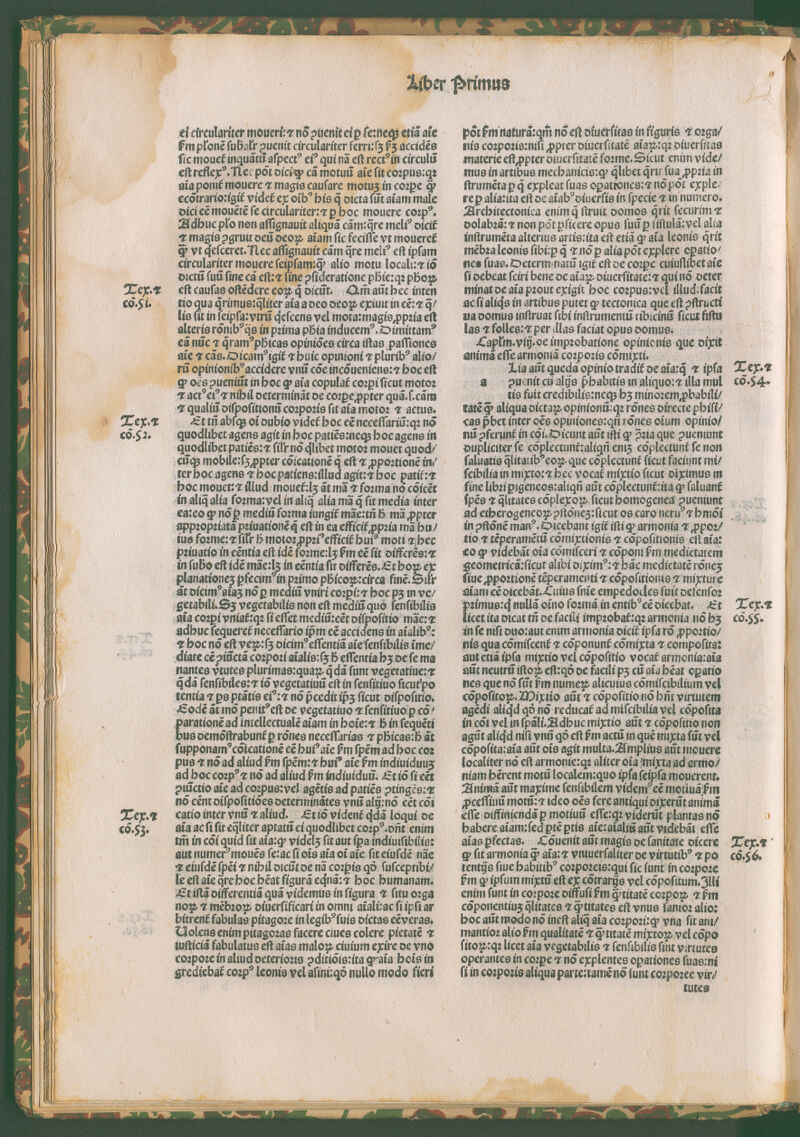 Liber Primus
ei circulariter moueri:⁊ nõ ꝯuenit ei ꝑ se:neqꝫ etiã aĩe
ẜm pl̃onẽ subal̃r ꝯuenit circulariter ferri:sꝫ ẜꝫ accidẽs
sic mouet̃ inquãtũ aspectꝰ eiꝰ qui nã est rectꝰ in circulũ
est reflexꝰ. Nec põt dici ꝙ cã motuũ aĩe sit corpus:qꝛ
aĩa ponit̃ mouere ⁊ magis causare motuꝫ in corꝑe ꝙ̃
ecõtrario:igit̃ videt̃ ex oĩbꝰ his q̃ dicta sũt aĩam male
dici eẽ mouẽtẽ se circulariter:⁊ ꝑ hoc mouere corpꝰ.
Adhuc pl̃o non assignauit aliquã cãm:q̃re meliꝰ dicit̃
⁊ magis ꝯgruit deũ deoꝝ aĩam sic fecisse vt moueret̃
ꝙ̃ vt q̃esceret. Nec assignauit cãm q̃re meliꝰ est ipsam
circulariter mouere seipsam:ꝙ̃ alio motu locali:⁊ iõ
dictũ suũ sine cã est:⁊ sine ꝯsideratione ph̃ie:qꝛ ph̃oꝝ
est causas ostẽdere eoꝝ q̃ dicũt. Qm̃ aũt hec inten
tio qua q̃rimus:q̃liter aĩa a deo deoꝝ exiuit in eẽ:⁊ q̃/
lis sit in seipsa:vtrũ q̃escens vel mota:magis ꝓpria est
alteris rõnibꝰ q̃s in prima ph̃ia inducemꝰ. Dimittamꝰ
eã nũc ⁊ q̃ramꝰ ph̃icas opiniões circa istas passiones
aĩe ⁊ cãs. Dicamꝰ igit̃ ⁊ huic opinioni ⁊ pluribꝰ alio/
rũ opinionibꝰ accidere vnũ cõe incõueniens:⁊ hoc est
ꝙ oẽs ꝯueniũt in hoc ꝙ aĩa copulat̃ corpi sicut motor
⁊ actꝰ eiꝰ ⁊ nihil determinãt de corꝑe ꝓpter quã.s.cãm
⁊ qualiũ dispositionũ corporis sit aĩa motor ⁊ actus.
Et tñ absqꝫ oĩ dubio videt̃ hoc eẽ necessariũ:qꝛ nõ
quodlibet agens agit in hoc patiẽs:neqꝫ hoc agens in
quodlibet patiẽs:⁊ sil̃r nõ q̃libet motor mouet quod/
cũqꝫ mobile:sꝫ ꝓpter cõicationẽ q̃ est ⁊ ꝓportionẽ in/
ter hoc agens ⁊ hoc patiens:illud agit:⁊ hoc patit̃:⁊
hoc mouet:⁊ illud mouet̃:lꝫ ãt mã ⁊ forma nõ cõicẽt
in aliq̃ alia forma:vel in aliq̃ alia mã q̃ sit media inter
ea:eo ꝙ nõ ꝑ mediũ forma iungit̃ mãe:tñ h̃ mã ꝓpter
appropriatã priuationẽ q̃ est in ea efficit̃ ꝓpria mã hu/
ius forme:⁊ sil̃r h̃ motor ꝓpriꝰ efficit̃ huiꝰ moti ⁊ hec
priuatio in eẽntia est idẽ forme:lꝫ ẜm eẽ sit differẽs:⁊
in subo est idẽ mãe:lꝫ in eẽntia sit differẽs. Et hoꝝ ex
planationeꝫ ꝑfecimꝰ in primo ph̃icoꝝ:circa finẽ. Sil̃r
ãt dicimꝰ aĩaꝫ nõ ꝑ mediũ vniri corpi:⁊ hoc pꝫ in ve/
getabili. Sꝫ vegetabilis non est mediũ quo sensibilis
aĩa corpi vniat̃:qꝛ si esset mediũ:eẽt dispositio mãe:⁊
adhuc sequeret̃ necessario ip̃m eẽ accidens in aĩalibꝰ:
⁊ hoc nõ est veꝝ:sꝫ dicimꝰ essentiã aĩe sensibilis ĩme/
diate eẽ ꝯiũctã corpori aĩalis:sꝫ h̃ essentia hꝫ de se ma
nantes vtutes plurimas:quaꝝ q̃dã sunt vegetatiue:⁊
q̃dã sensibiles:⁊ iõ vegetatiuũ est in sensitiuo sicut po
tentia ⁊ ps ptãtis eiꝰ:⁊ nõ p̃cedit ip̃ꝫ sicut dispositio.
Eodẽ ãt mõ penitꝰ est de vegetatiuo ⁊ sensitiuo ꝑ cõ
parationẽ ad intellectualẽ aĩam in hoĩe:⁊ h̃ in sequẽti
bus demõstrabunt̃ ꝑ rõnes necessarias ⁊ ph̃icas:h̃ ãt
supponamꝰ cõicationẽ eẽ huiꝰ aĩe ẜm spẽm ad hoc cor
pus ⁊ nõ ad aliud ẜm spẽm:⁊ huiꝰ aĩe ẜm indiuiduuꝫ
ad hoc corpꝰ ⁊ nõ ad aliud ẜm indiuiduũ. Et iõ si eẽt
ꝯiũctio aĩe ad corpus:vel agẽtis ad patiẽs ꝯtingẽs:⁊
nõ eẽnt dispositiões determinãtes vnũ aliq̃:nõ eẽt cõi
catio inter vnũ ⁊ aliud. Et iõ vident̃ q̃dã loqui de
aĩa ac si sit eq̃liter aptatũ ei quodlibet corpꝰ. dñt enim
tm̃ in cõi quid sit aĩa:ꝙ videlꝫ sit aut spã indiuisibilis:
aut numerꝰ mouẽs se:ac si oĩs aĩa oĩ aĩe sit eiusdẽ nãe
⁊ eiusdẽ spẽi ⁊ nihil dicũt de nã corpis qõ susceptibi/
le est aĩe q̃re hoc hẽat figurã eq̃nã:⁊ hoc humanam.
Et istã differentiã quã videmus in figura ⁊ situ orga
noꝝ ⁊ mẽbroꝝ diuersificari in omni aĩali:ac si ipsi ar
bitrent̃ fabulas pitagore in legibꝰ suis dictas eẽ veras.
Volens enim pitagoras facere ciues colere pietatẽ ⁊
iusticiã fabulatus est aĩas maloꝝ ciuium exire de vno
corpore in aliud deterioris ꝯditiõis:ita ꝙ aĩa hoĩs in
grediebat̃ corpꝰ leonis vel asini:qõ nullo modo fieri
Tex.⁊
cõ.51.
Tex.⁊
cõ.52.
Tex.⁊
cõ.53.
põt ẜm naturã:qm̃ nõ est diuersitas in figuris ⁊ orga/
nis corporis:nisi ꝓpter diuersitatẽ aĩaꝝ:qꝛ diuersitas
materie est ꝓpter diuersitatẽ forme. Sicut enim vide/
mus in artibus mechanicis:ꝙ q̃libet q̃rit sua ꝓpria in
strumẽta ꝑ q̃ expleat suas oꝑationes:⁊ nõ põt exple
re ꝑ alia:ita est de aĩabꝰ diuersis in specie ⁊ in numero.
Architectonica enim q̃ struit domos q̃rit securim ⁊
dolabrã:⁊ non põt ꝑficere opus suũ ꝑ fistulã:vel alia
instrumẽta alterius artis:ita est etiã ꝙ aĩa leonis q̃rit
mẽbra leonis sibi:ꝑ q̃ ⁊ nõ ꝑ alia põt explere oꝑatio/
nes suas. Determinatũ igit̃ est de corꝑe cuiuslibet aĩe
si debeat sciri bene de aĩaꝝ diuersitate:⁊ qui nõ deter
minat de aĩa prout exigit hoc corpus:vel illud:facit
ac si aliqͥs in artibus putet ꝙ tectonica que est ꝯstructi
ua domus instruat sibi instrumentũ tibicinũ sicut fistu
las ⁊ folles:⁊ per illas faciat opus domus.
Caplm̃.viij. de improbatione opinionis que dixit
animã esse armoniã corporis cõmixti.
Lia aũt queda opinio tradit̃ de aĩa:q̃ ⁊ ipsa
a ꝯuenit cũ alijs p̃habitis in aliquo:⁊ illa mul
tis fuit credibilis:neqꝫ hꝫ minorem ꝓbabili/
tatẽ ꝙ̃ aliqua dictaꝝ opinionũ:qꝛ rõnes directe phisi/
cas p̃bet inter oẽs opiniones:qñ rõnes oĩum opinio/
nũ ꝯferunt̃ in cõi. Dicunt aũt isti ꝙ ꝯtria que ꝯueniunt
dupliciter se cõplectunt̃:aliqñ enĩꝫ cõplectunt̃ se non
saluatis q̃litatibꝰ eoꝝ que cõplectunt̃ sicut faciunt mi/
scibilia in mixto:⁊ hec vocat̃ mixtio sicut diximus in
fine libri pigeneos:aliqñ aũt cõplectunt̃:ita ꝙ saluant̃
spẽs ⁊ q̃litates cõplexoꝝ sicut homogenea ꝯueniunt
ad etherogeneoꝝ ꝯstõneꝫ:sicut os caro neruꝰ ⁊ hmõi
in ꝯstõnẽ manꝰ. Dicebant igit̃ isti ꝙ armonia ⁊ ꝓpor/
tio ⁊ tẽperamẽtũ cõmixtionis ⁊ cõpositionis est aĩa:
eo ꝙ videbãt oĩa cõmisceri ⁊ cõponi ẜm medietatem
geometricã:sicut alibi diximꝰ:⁊ hãc medietatẽ rõneꝫ
siue ꝓportionẽ tẽperamenti ⁊ cõpositionis ⁊ mixture
aĩam eẽ dicebãt. Cuius sñie empedocles fuit defensor
primus:q̃ nullã oĩno formã in entibꝰ eẽ dicebat. Et
licet ita dicat tñ de facili improbat̃:qꝛ armonia nõ hꝫ
in se nisi duo:aut enim armonia dicit̃ ipsa rõ ꝓportio/
nis qua cõmiscent̃ ⁊ cõponunt̃ cõmixta ⁊ composita:
aut etiã ipsa mixtio vel cõpositio vocat̃ armonia:aĩa
aũt neutrũ istoꝝ est:qõ de facili pꝫ cũ aĩa hẽat opatio
nes que nõ sũt ẜm numeꝝ alicuius cõmiscibilium vel
cõpositoꝝ. Mixtio aũt ⁊ cõpositio nõ hñt virtutem
agẽdi aliqͥd qõ nõ reducat̃ ad miscibilia vel cõposita
in cõi vel in spãli. Adhuc mixtio aũt ⁊ cõpositio non
agũt aliqͥd nisi vnũ qõ est ẜm actũ in quẽ mixta sũt vel
cõposita:aĩa aũt oĩs agit multa. Amplius aũt mouere
localiter nõ est armonie:qꝛ aliter oĩa mixta ad armo/
niam hẽrent motũ localem:quo ipsa seipsa mouerent.
Animã aũt maxime sensibilem videmꝰ eẽ motiuã ẜm
ꝓcessiuũ motũ:⁊ ideo oẽs fere antiqui dixerũt animã
esse diffiniendã ꝑ motiuũ esse:qꝛ viderũt plantas nõ
habere aĩam:sed ptẽ ptis aĩe:aĩaliũ aũt videbãt esse
aĩas ꝑfectas. Cõuenit aũt magis de sanitate dicere
ꝙ sit armonia ꝙ̃ aĩa:⁊ vniuersaliter de virtutibꝰ ⁊ po
tentijs siue habitibꝰ corporeis:qui sic sunt in corpore
ẜm ꝙ ipsum mixtũ est ex cõtrarijs vel cõpositum. Illi
enim sunt in corpore diffusi ẜm ꝙ̃titatẽ corpoꝝ ⁊ ẜm
cõponentiuꝫ q̃litates ⁊ ꝙ̃titates est vnus sanior alio:
hoc aũt modo nõ inest aliq̃ aĩa corpori:ꝙ vna sit ani/
mantior alio ẜm qualitatẽ ⁊ ꝙ̃titatẽ mixtoꝝ vel cõpo
sitoꝝ:qꝛ licet aĩa vegetabilis ⁊ sensibilis sint virtutes
operantes in corꝑe ⁊ nõ explentes oꝑationes suas:ni
si in corporis aliqua parte:tamẽ nõ sunt corporee vir/
tutes
Tex.⁊
cõ.54.
Tex.⁊
cõ.55.
Tex.⁊
cõ.56.